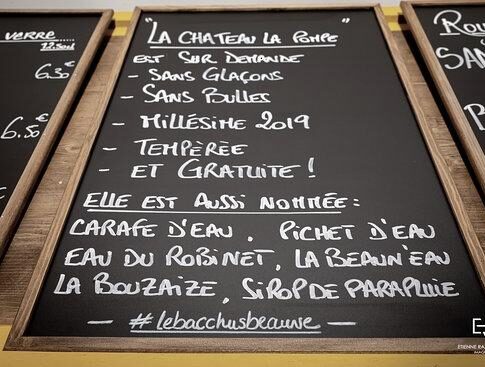 verre
12.5cl
6.30€
6.50€
"LA CHATEAU LA POMPE"
EST SUR DEMANDE
- SANS GLAÇONS
- SANS BULLES
- MILLÉSIME 2019
- TEMPÈRÈE
- ET GRATUITE !
ELLE EST AUSSI NOMMÉE :
CARAFE D'EAU, PICHET D'EAU
EAU DU ROBINET, LA BEAUN'EAU
LA BOUZAIZE, SIROP DE PARAPLUIE
— #lebacchusbeaune —